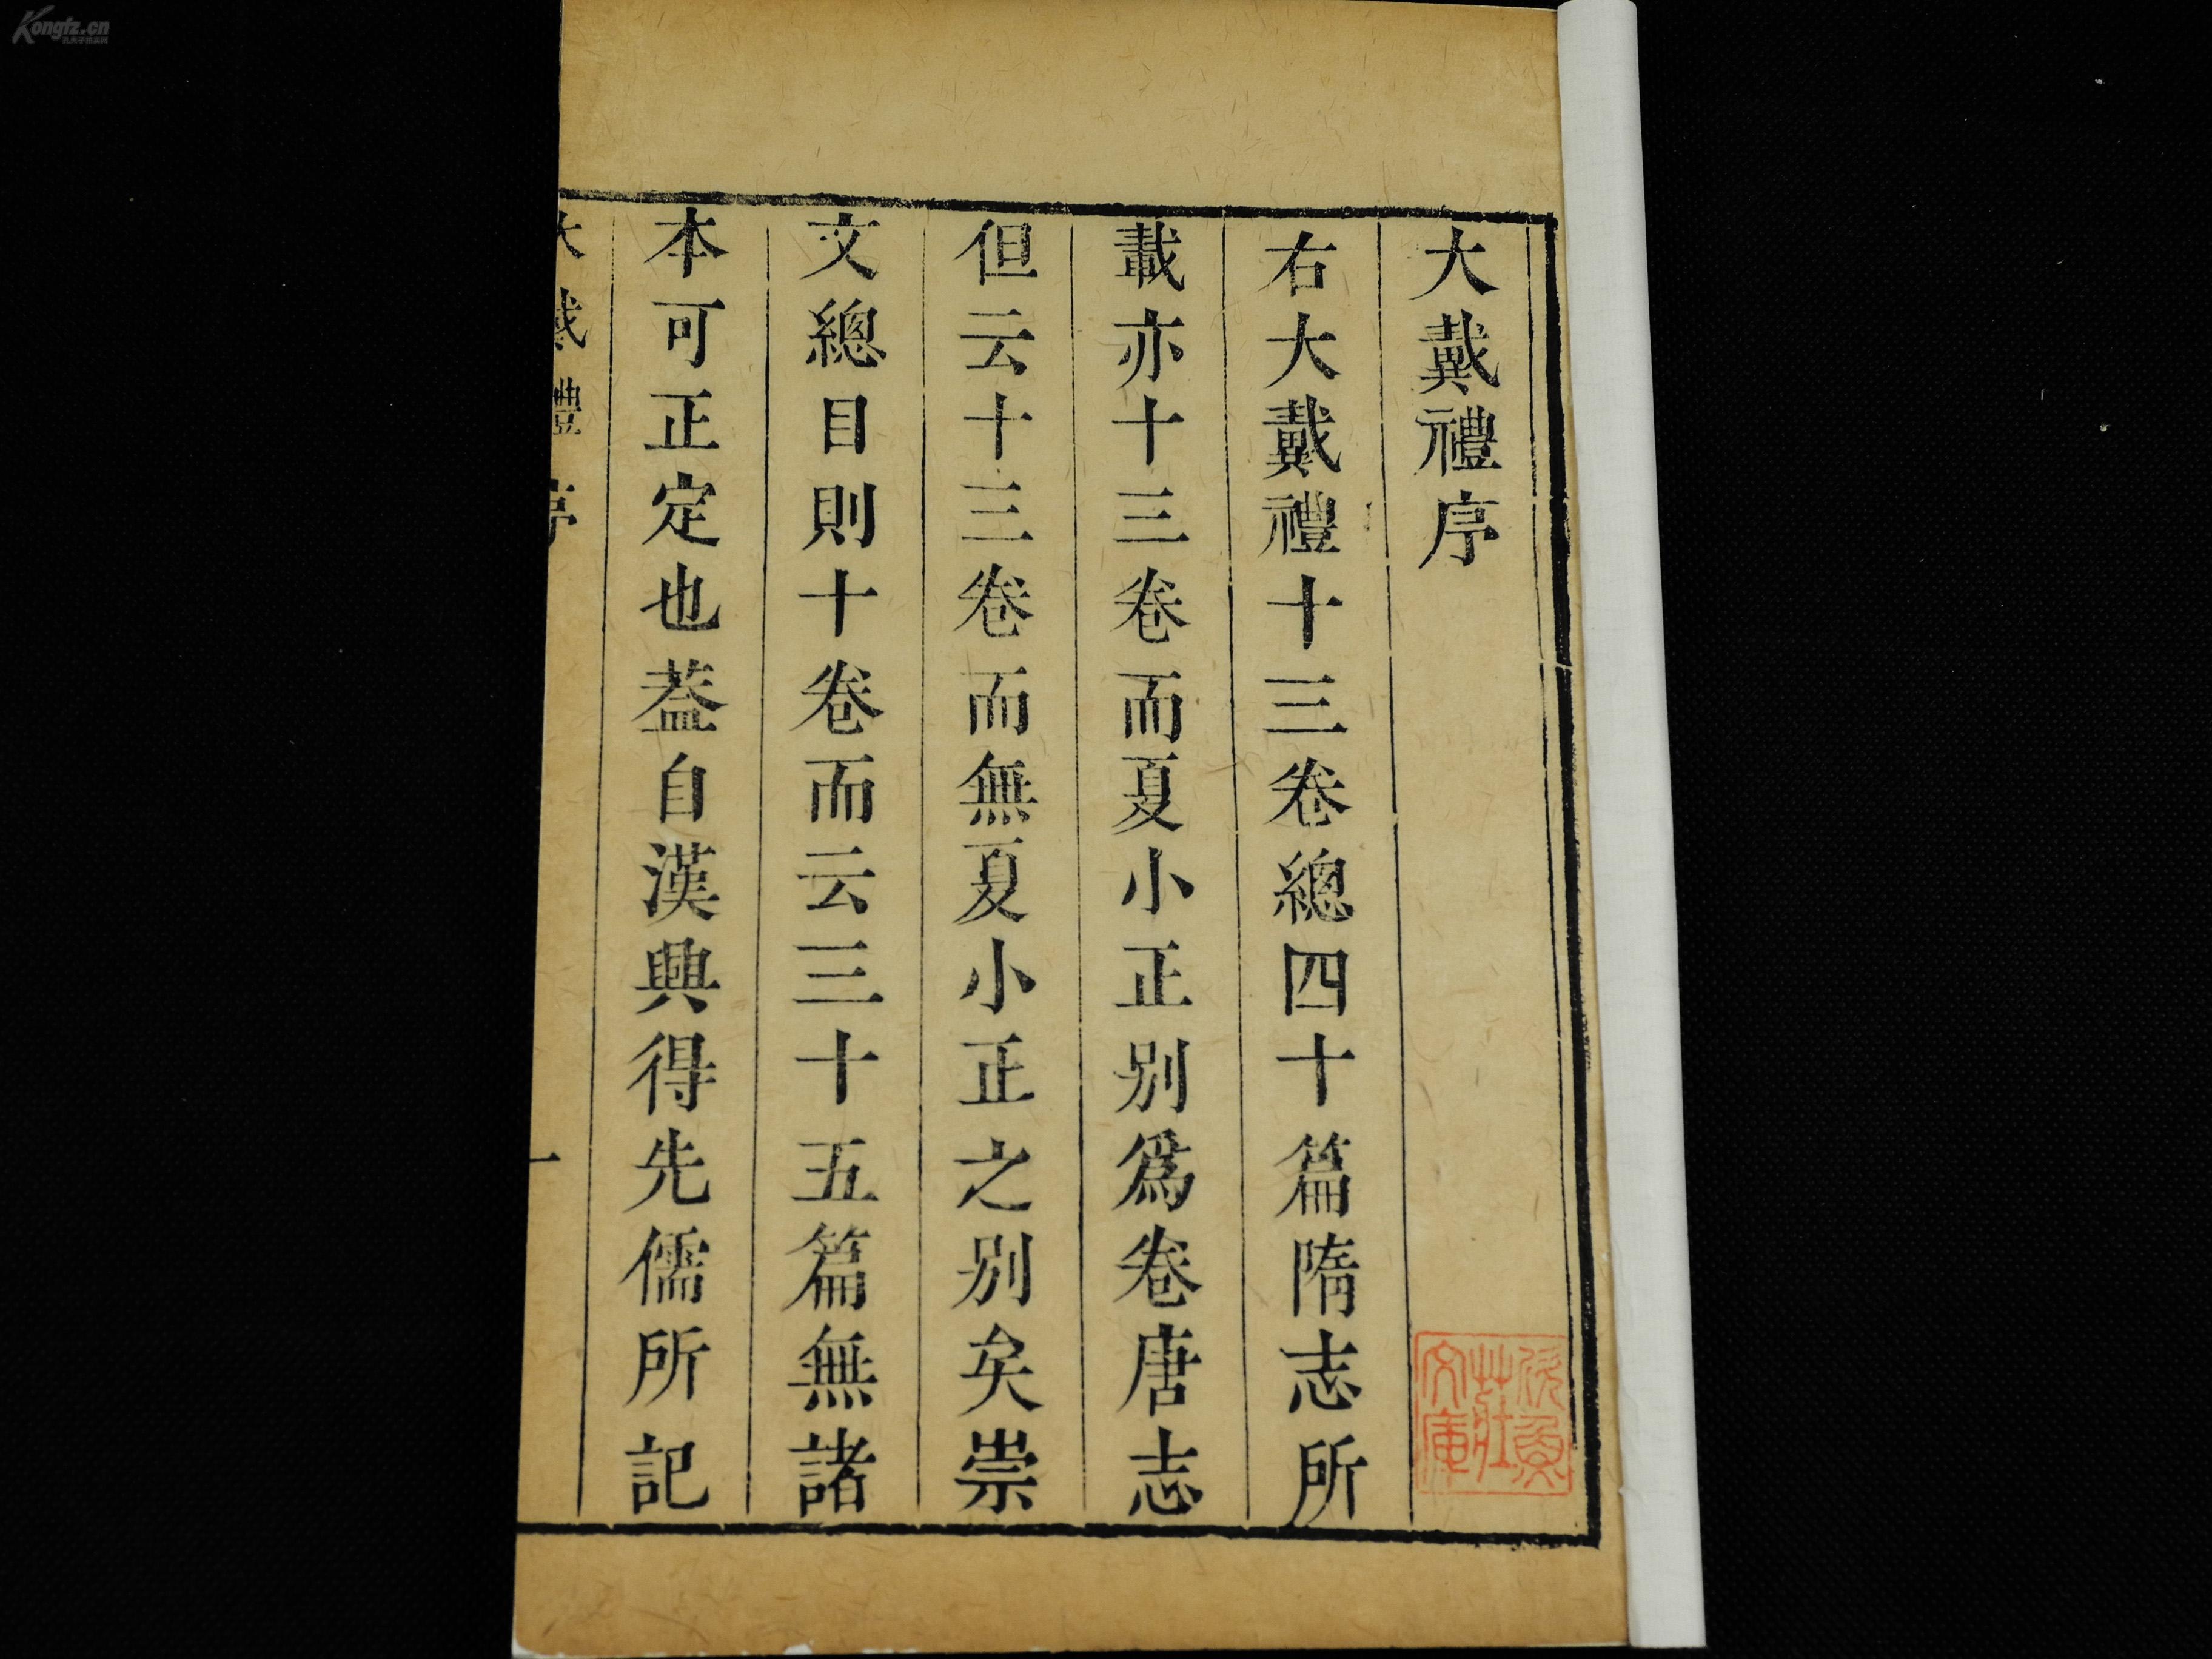 大戴禮序
右大戴禮十三卷總四十篇隋志所
載亦十三卷而夏小正别爲卷唐志
但云十三卷而無夏小正之别矣崇
文總目則十卷而云三十五篇無諸
本可正定也葢自漢興得先儒所記
大戴禮序
一
文庫
Kongfz.cn